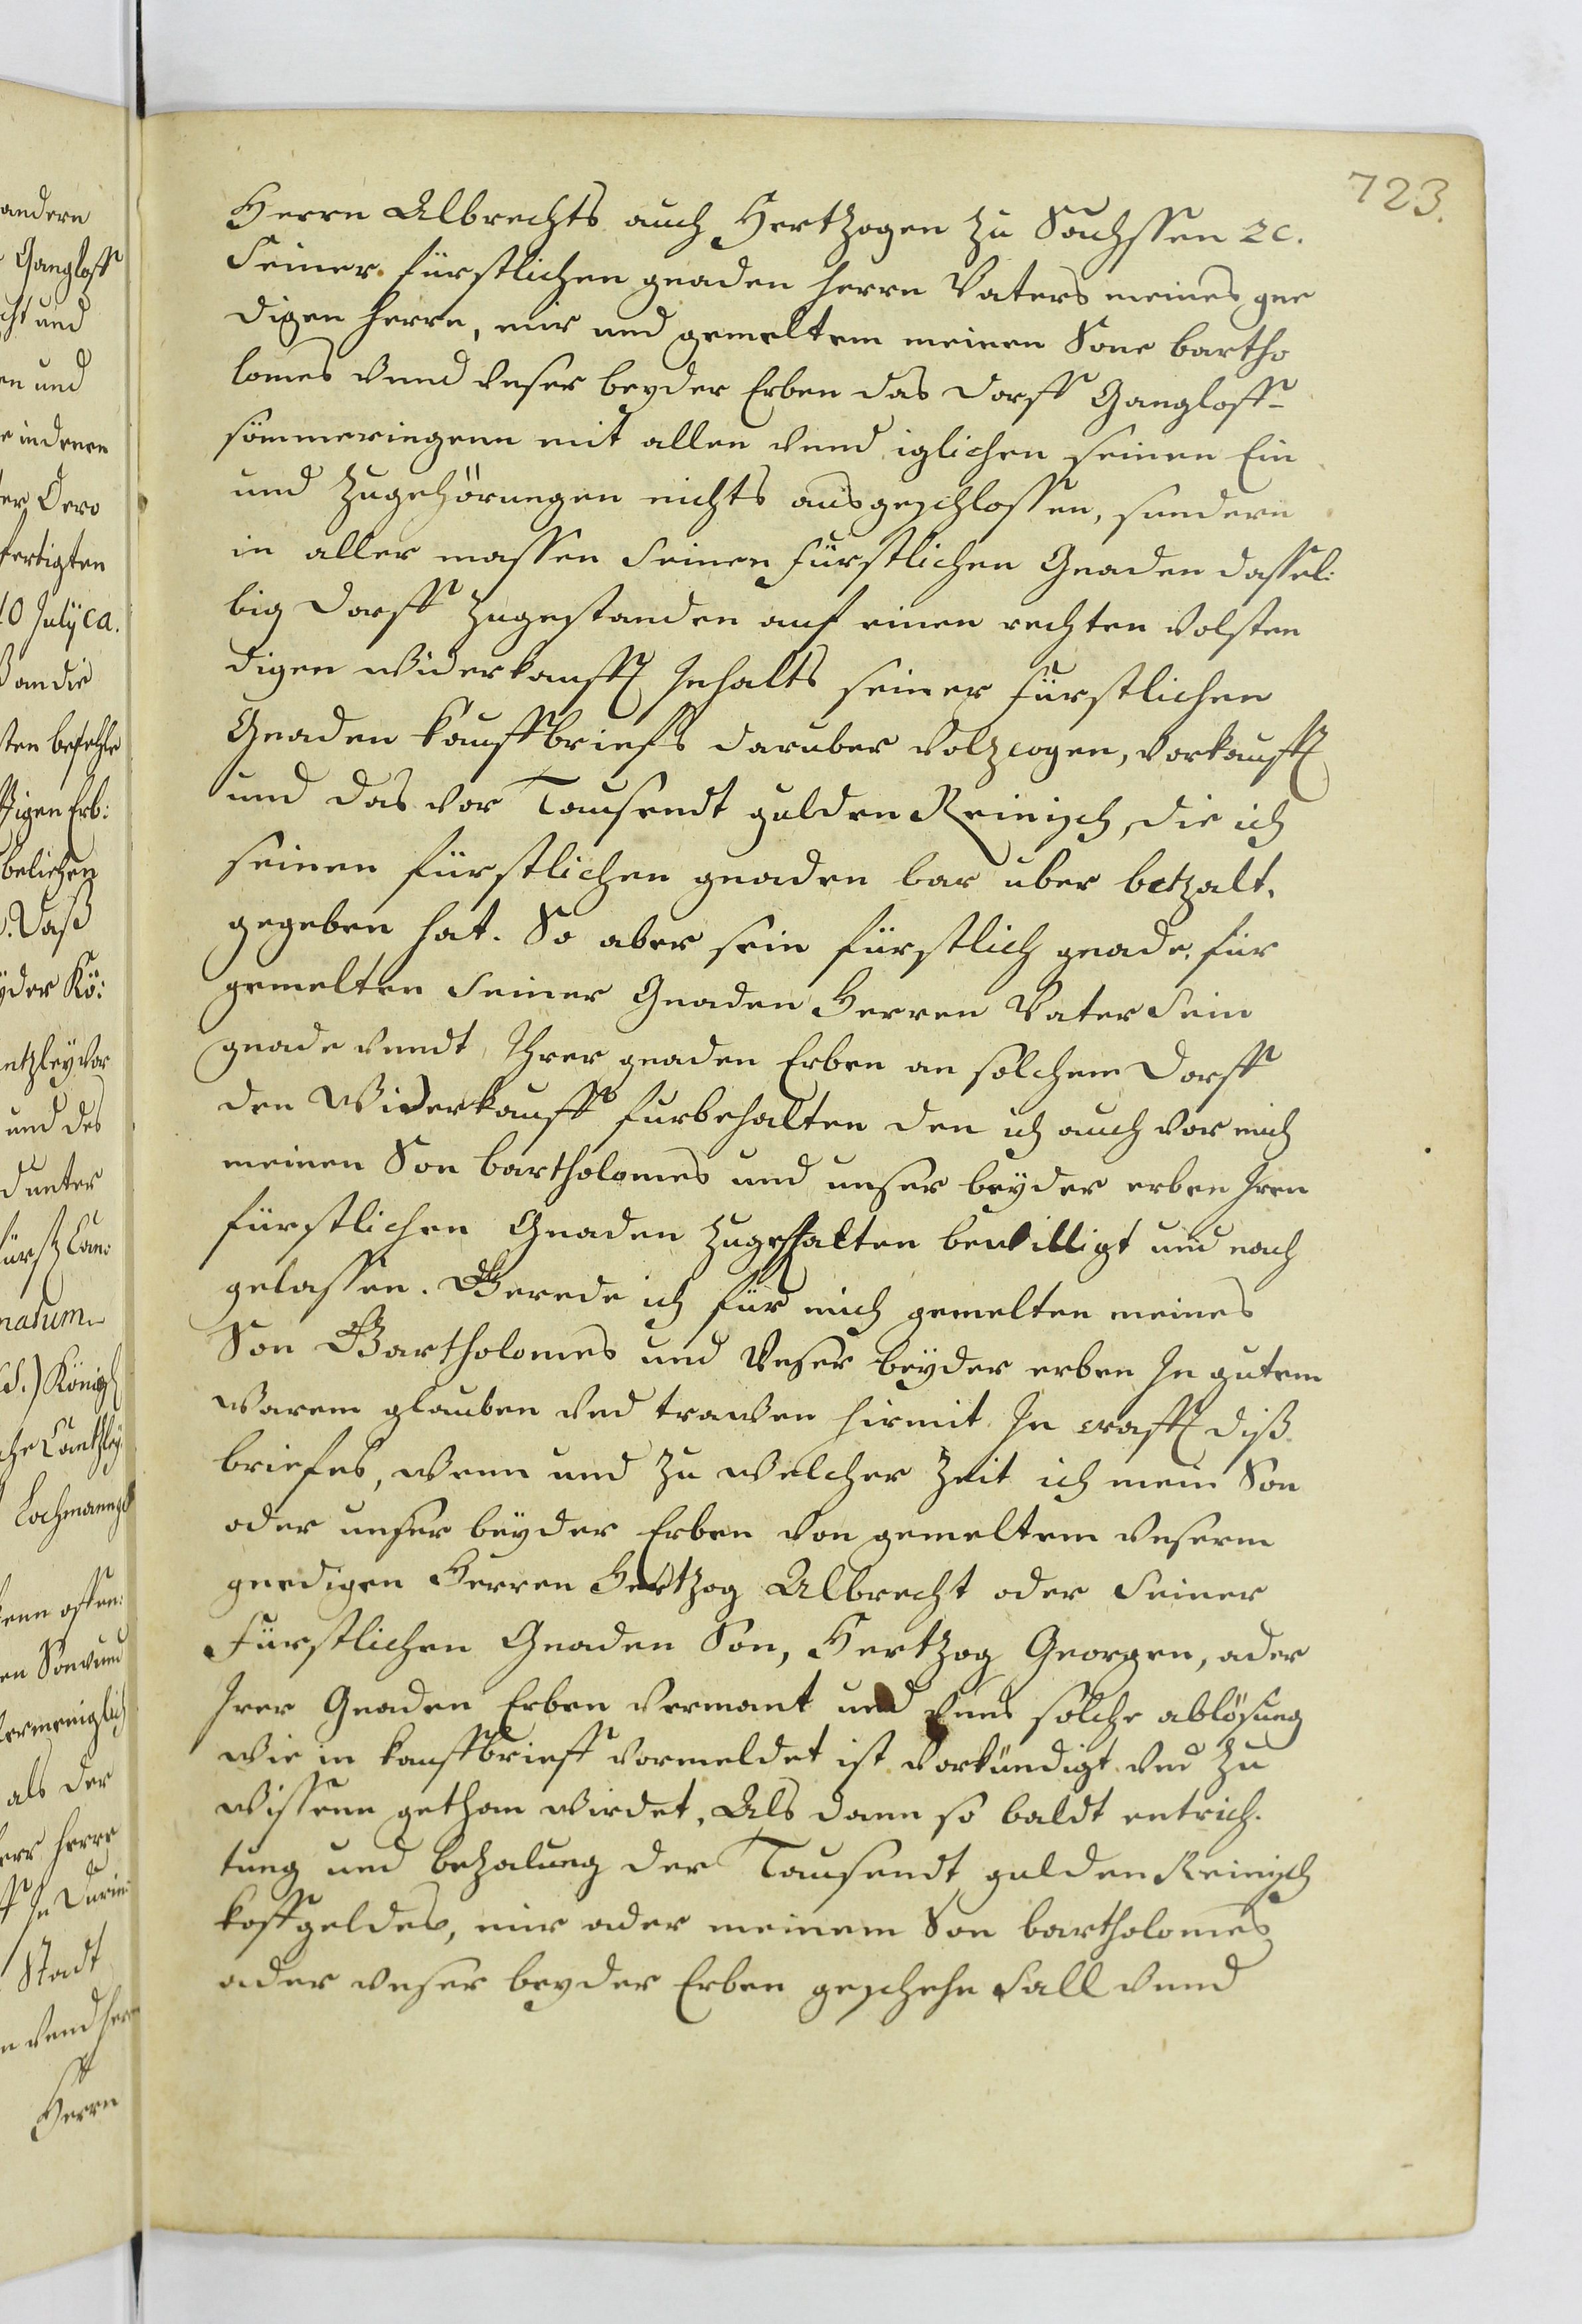 723.
Herrn Albrechts auch Hertzogen zu Sachssen 2c.
Seiner fürstlichen gnaden herrn Vaters meines gne
digen herrn, mir und gemeltem meinen Sone bartho
lomes vnnd vnser beyder Erben das dorff Gangloff-
sömmeringenn mit allen vnnd iglichen seinen Ein
und zugehörungen nichts ausgeschlossen, sundern
in aller massen Seinen fürstlichen Gnaden dassel:
big dorff zugestanden auf einen rechten volsten
digen widerkauff Inhalts seiner fürstlichen
Gnaden kauffbriefs daruber volzcogen, vorkaufft
und das vor Tausendt gulden Reinisch, die ich
seinen fürstlichen gnaden bar uber betzalt.
gegeben hat. So aber sein fürstlich gnade. für
gemelten Seiner Gnaden Herren Vater Sein
gnade vnndt Ihrer gnaden Erben an solchem dorff
den Widerkauff furbehalten den ich auch vor mich
meinen Son bartholomes und unser beyder erben Iren
fürstlichen Gnaden zugehalten bewilligt und nach
gelassen. Gerede ich für mich gemelten meines
Son Bartholomes und Vnser beyder erben In gutem
warem glauben vnd trawen hirmit In craft diß
briefes, wenn und zu welcher Zeit ich mein Son
oder unser beyder Erben von gemeltem vnserm
gnedigen Herren Hertzog Albrecht oder Seiner
Fürstlichen Gnaden Son, Hertzog Georgen, ader
Irer Gnaden Erben vermant und vnns solche ablösung
wie in kauffbrieff vormeldet ist vorkündigt vnd zu
wissenn gethan wirdet, Als dann so baldt entrich.
tung und bezalung der Tausendt gulden Reinisch
koffgeldes, mir ader meinem Son bartholomes
ader vnser beyder Erben geschehn Sall vnnd
andern
Gangloff
cht und
en und
e indenen
ter Dero
fertigten
10 Julij ca.
ß an die
sten befehle
belichen
Daß
yder Kö:
ntzley vor
und des
d unter
natum
Königl
che Cantzley
Lochmann
enn offen:
en Son vnnd
ermeniglich
als der
err herre
Stadt
n vnnd herrn
Herrn